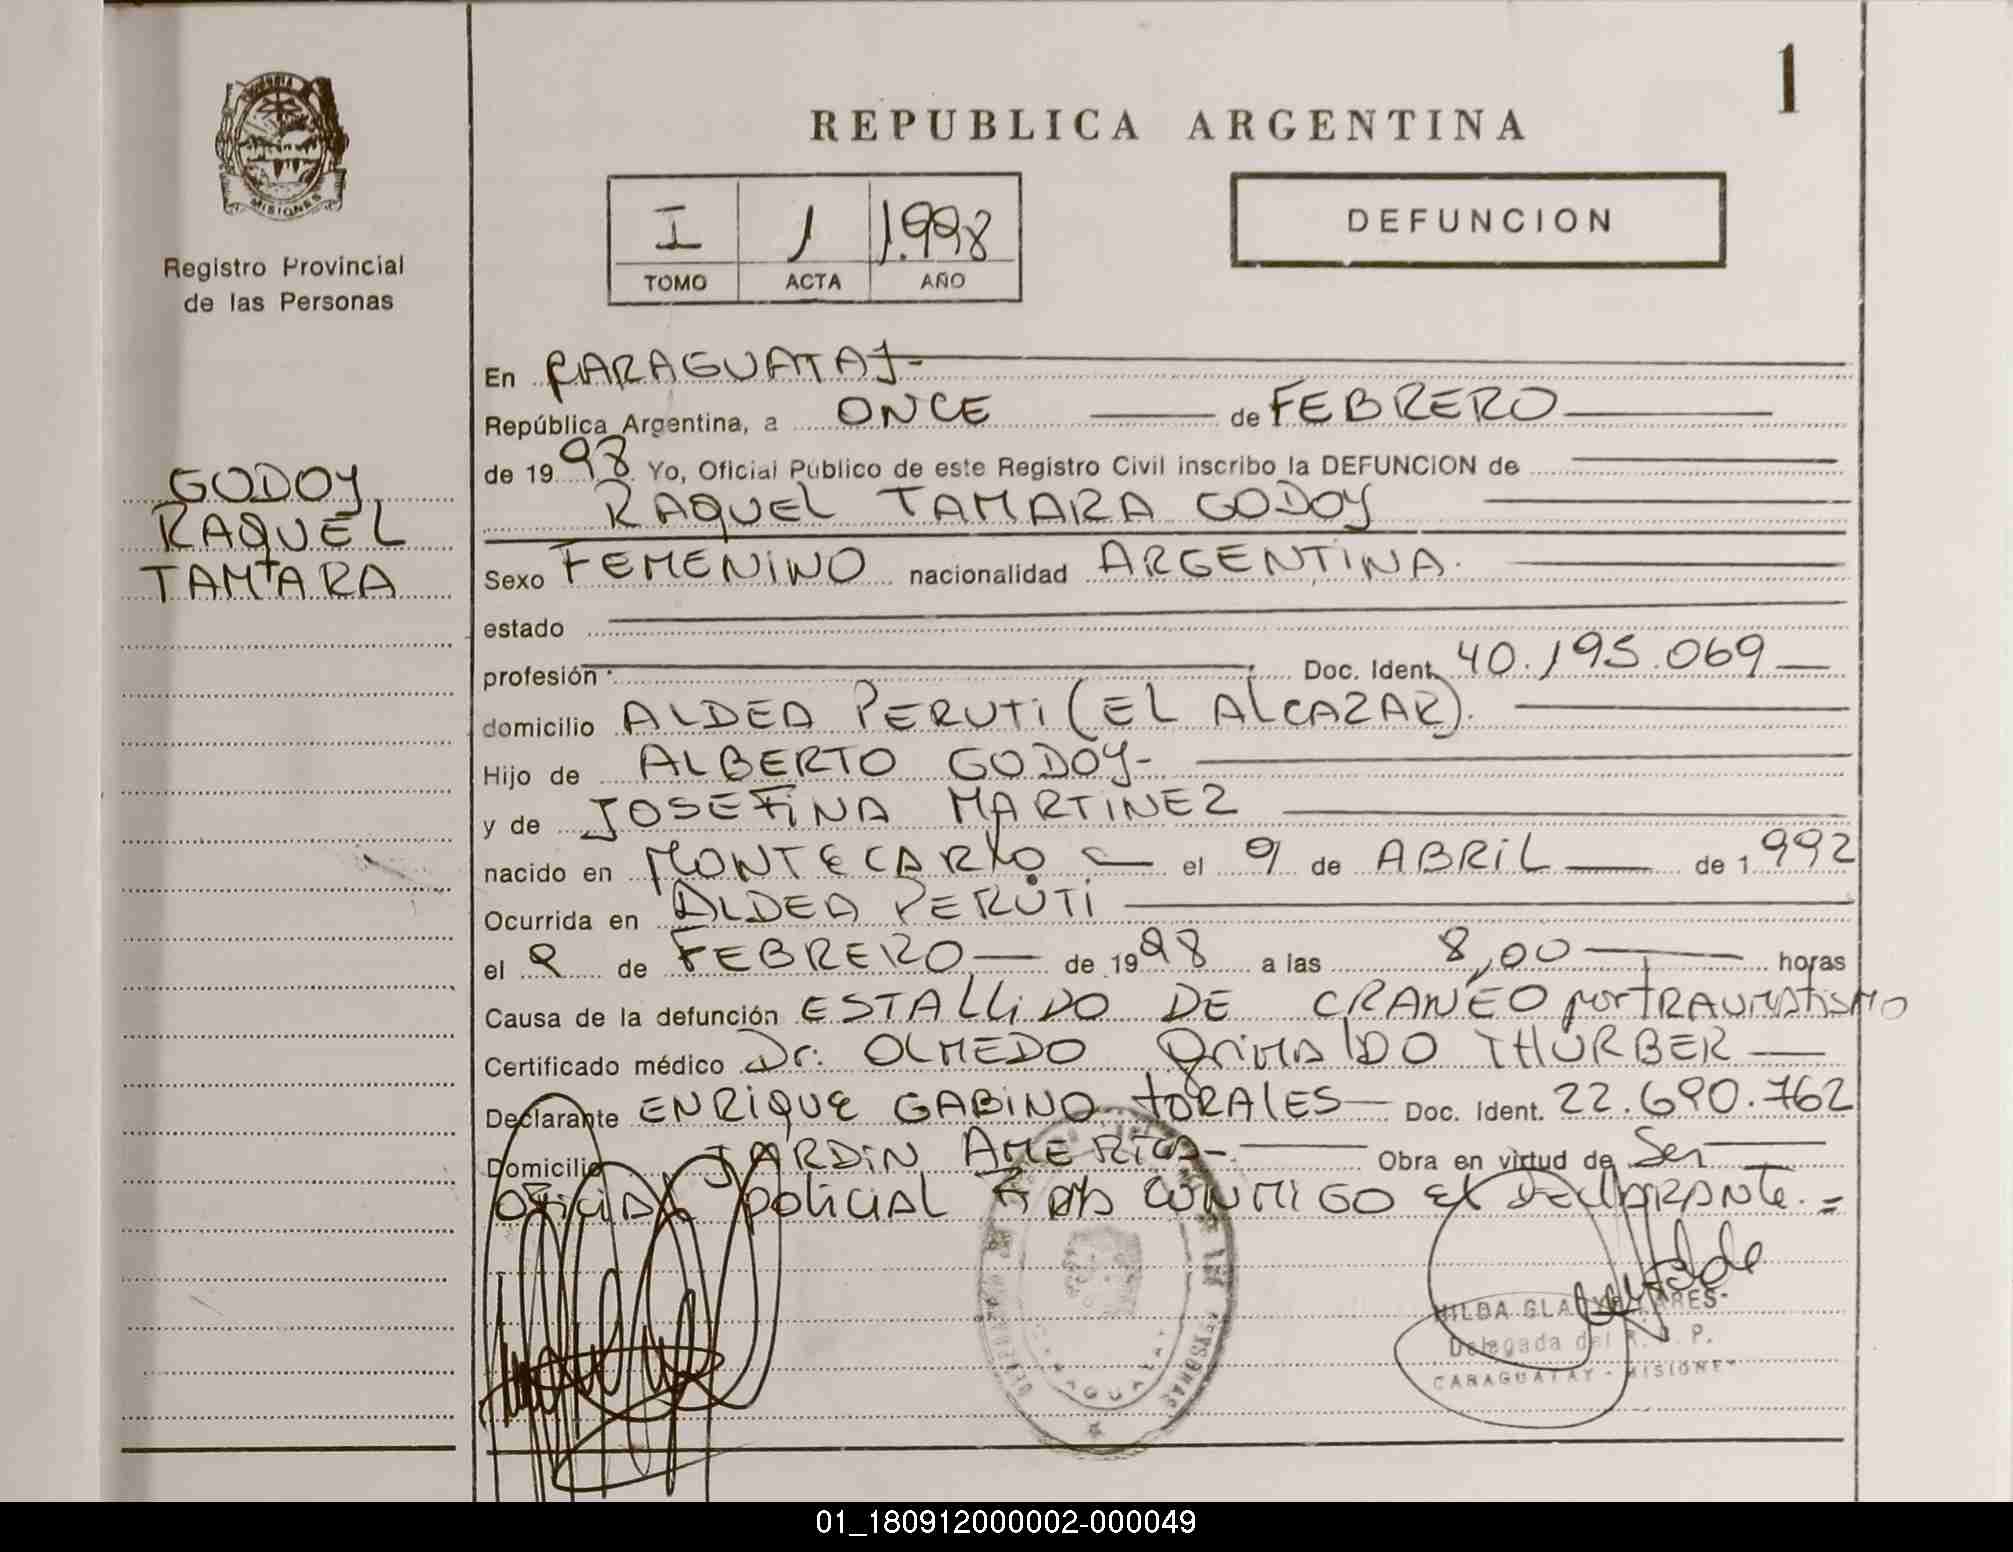 1
REPUBLICA ARGENTINA
I 1 1.998
TOMO ACTA AÑO
DEFUNCION
MISIONES
Registro Provincial
de las Personas
GODOY
RAQUEL
TAMARA
En CARAGUATAY-
República Argentina, a ONCE de FEBRERO
de 1998 Yo, Oficial Público de este Registro Civil inscribo la DEFUNCION de
RAQUEL TAMARA GODOY
Sexo FEMENINO nacionalidad ARGENTINA.
estado
profesión Doc. Ident. 40.195.069
domicilio ALDEA PERUTI (EL ALCAZAR).
Hijo de ALBERTO GODOY-
y de JOSEFINA MARTINEZ
nacido en MONTECARLO el 9 de ABRIL de 1.992
Ocurrida en ALDEA PERUTI
el de FEBRERO de 1998 a las 8,00 horas
Causa de la defunción ESTALLIDO DE CRANEO por TRAUMATISMO
Certificado médico Dr. OLMEDO THURBER
Declarante ENRIQUE GABINO TORALES Doc. Ident. 22.690.762
Domicilio JARDIN AMERICA- Obra en virtud de Ser
OFICIAL POLICIAL CONMIGO EL DECLARANTE.=
HILDA
Delegada del R. P.
CARAGUATAY - MISIONES
01_180912000002-000049